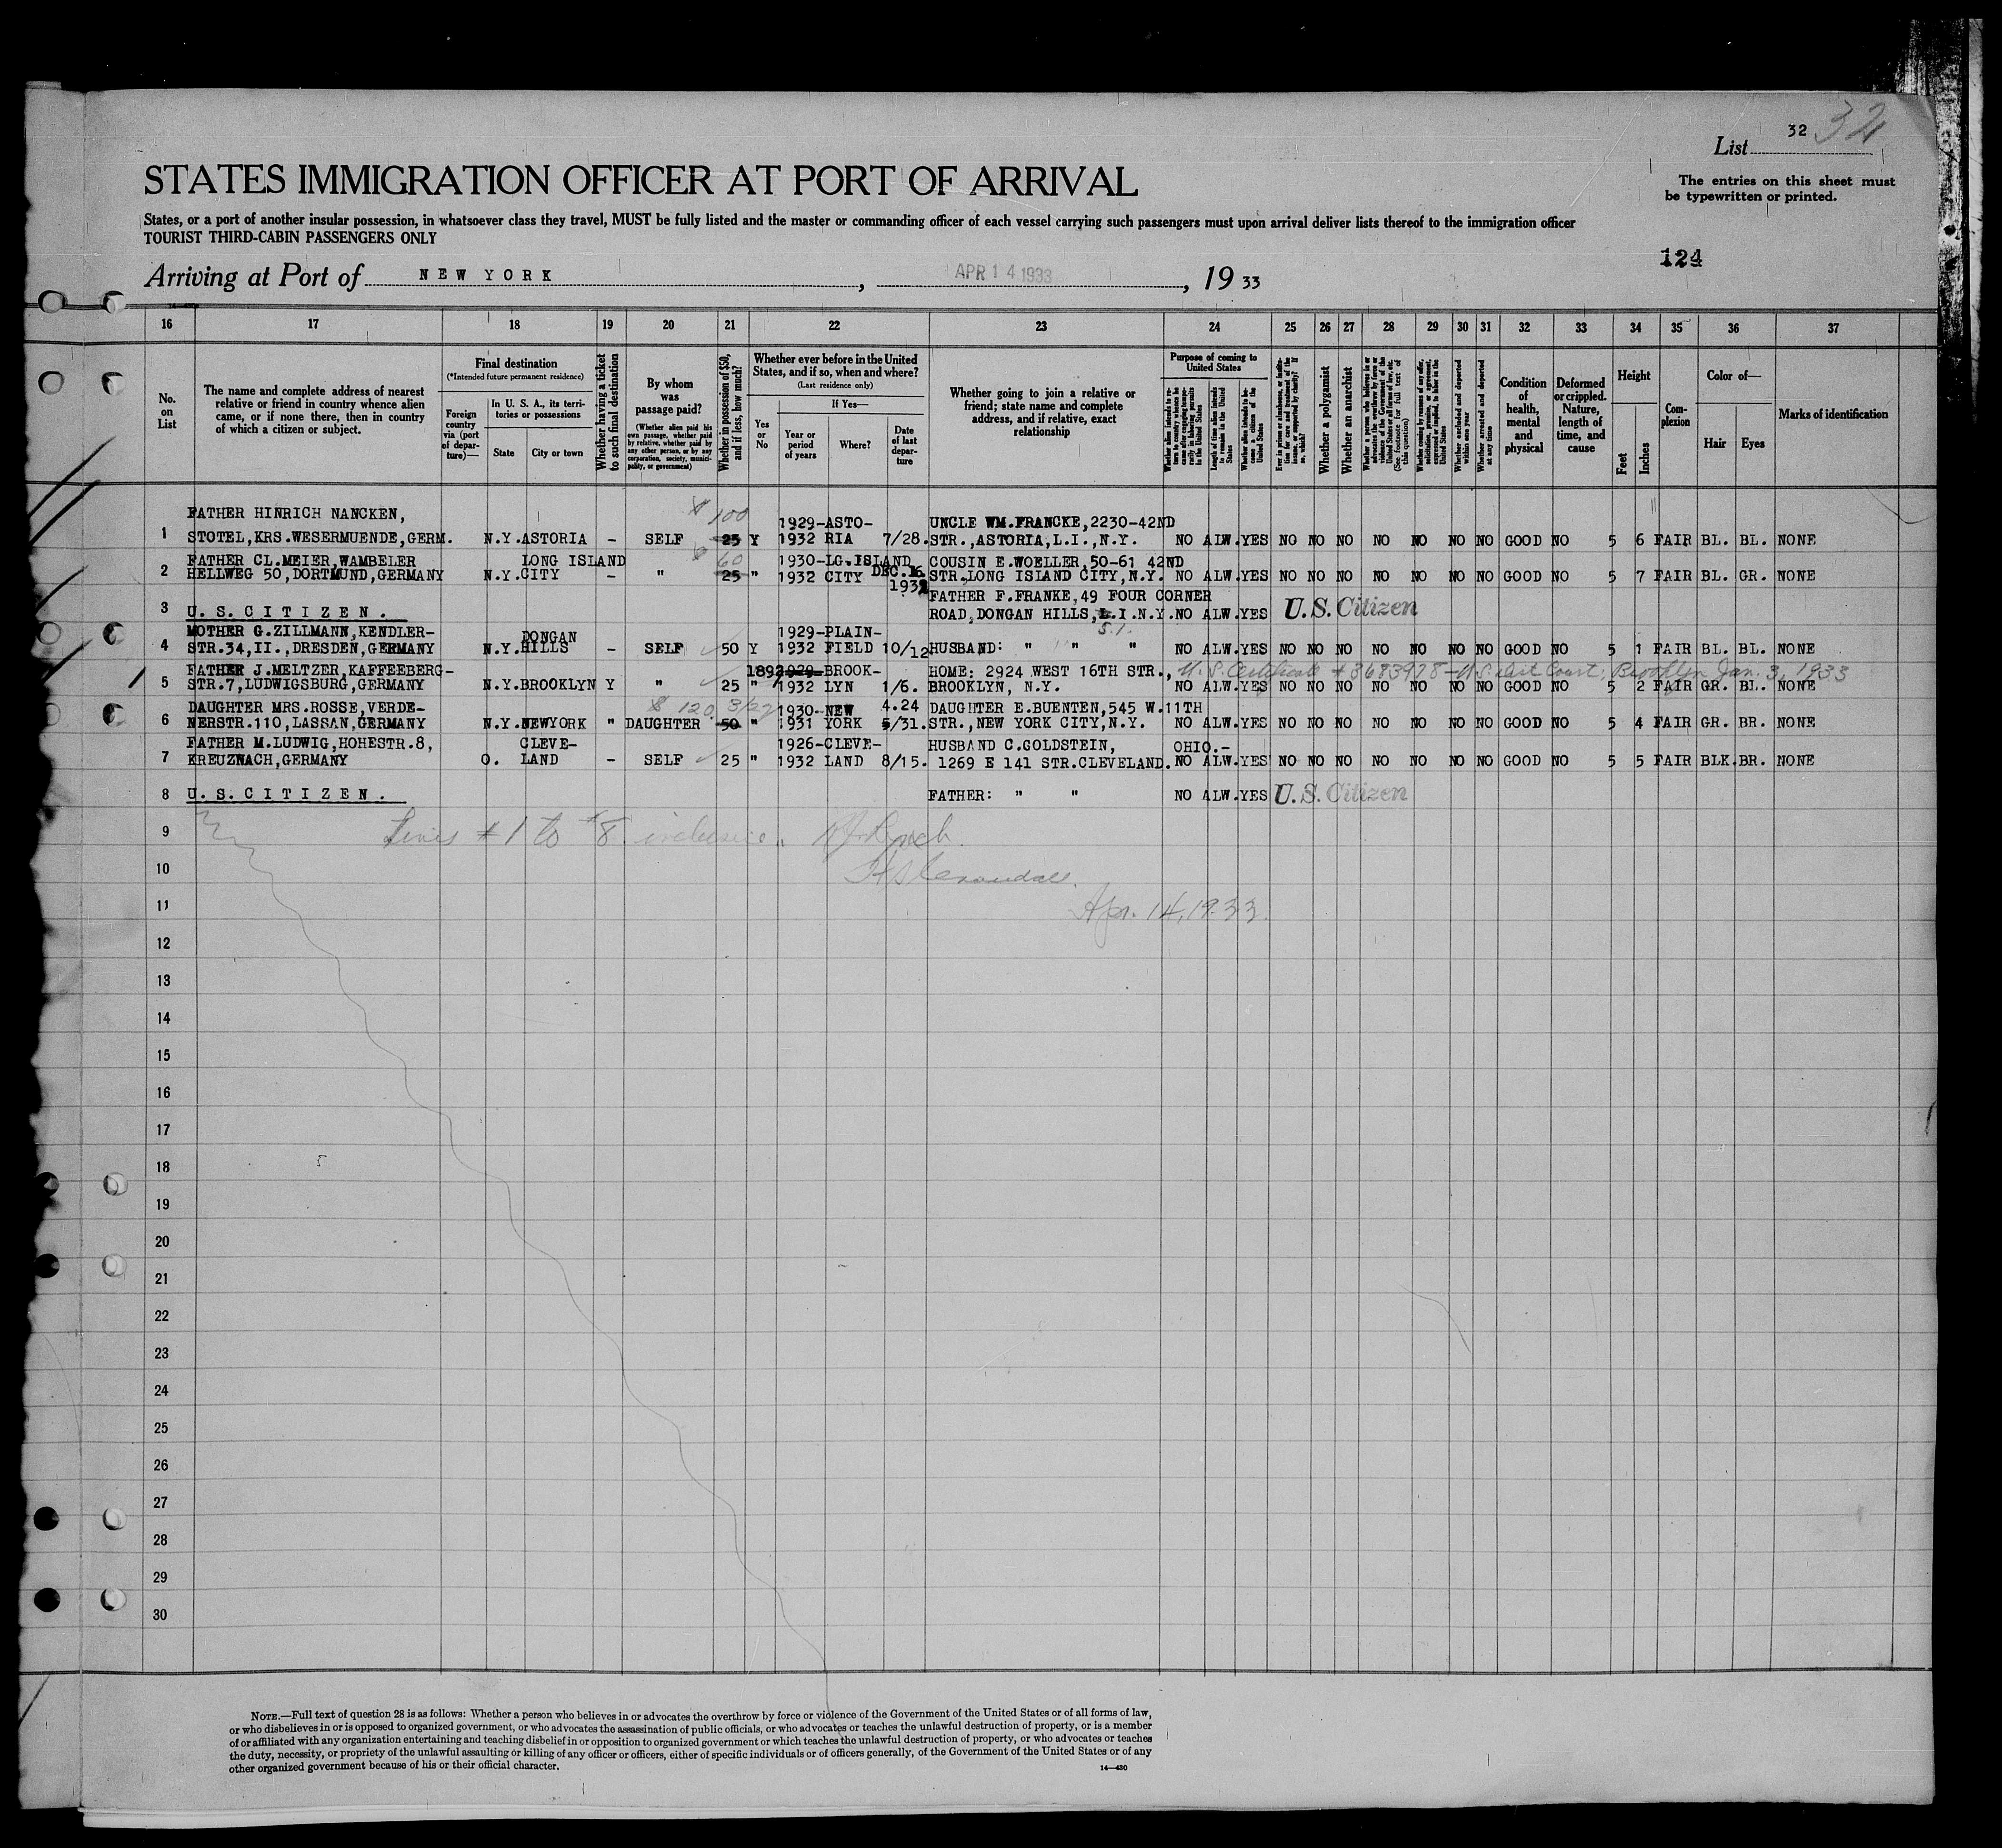 32 32
List
STATES IMMIGRATION OFFICER AT PORT OF ARRIVAL
The entries on this sheet must
be typewritten or printed.
States, or a port of another insular possession, in whatsoever class they travel, MUST be fully listed and the master or commanding officer of each vessel carrying such passengers must upon arrival deliver lists thereof to the immigration officer
TOURIST THIRD-CABIN PASSENGERS ONLY
124
Arriving at Port of NEW YORK, APR 14 1933, 19 33
16 17 18 19 20 21 22 23 24 25 26 27 28 29 30 31 32 33 34 35 36 37
No. on List
The name and complete address of nearest relative or friend in country whence alien came, or if none there, then in country of which a citizen or subject.
Final destination
(*Intended future permanent residence)
Foreign country via (port of departure)—
In U. S. A., its territories or possessions
State
City or town
Whether having a ticket to such final destination
By whom was passage paid?
(Whether alien paid his own passage, whether paid by relative, whether paid by any other person, or by any corporation, society, municipality, or government)
Whether in possession of $50, and if less, how much?
Whether ever before in the United States, and if so, when and where?
(Last residence only)
Yes or No
If Yes—
Year or period of years
Where?
Date of last departure
Whether going to join a relative or friend; state name and complete address, and if relative, exact relationship
Purpose of coming to United States
Length of time alien intends to remain in the United States
Whether alien intends to become a citizen of the United States
Whether a polygamist
Whether an anarchist
Whether excluded and deported within one year
Whether arrested and deported at any time
Condition of health, mental and physical
Deformed or crippled. Nature, length of time, and cause
Height
Feet
Inches
Complexion
Color of—
Hair
Eyes
Marks of identification
FATHER HINRICH NANCKEN, $ 100 1929-ASTO- UNCLE WM.FRANCKE,2230-42ND
1 STOTEL,KRS.WESERMUENDE,GERM. N.Y. ASTORIA - SELF 25 Y 1932 RIA 7/28. STR.,ASTORIA,L.I.,N.Y. NO ALW. YES NO NO NO NO NO NO NO GOOD NO 5 6 FAIR BL. BL. NONE
FATHER CL.MEIER,WAMBELER LONG ISLAND $ 60 1930-LG.ISLAND COUSIN E.WOELLER,50-61 42ND
2 HELLWEG 50,DORTMUND,GERMANY N.Y. CITY - " 25 " 1932 CITY DEC.16. STR.,LONG ISLAND CITY,N.Y. NO ALW. YES NO NO NO NO NO NO NO GOOD NO 5 7 FAIR BL. GR. NONE
FATHER F.FRANKE,49 FOUR CORNER
3 U.S.CITIZEN. ROAD,DONGAN HILLS,L.I.N.Y. S.I. NO ALW. YES U.S. Citizen
MOTHER G.ZILLMANN,KENDLER- DONGAN 1929-PLAIN-
4 STR.34,II.,DRESDEN,GERMANY N.Y. HILLS - SELF 50 Y 1932 FIELD 10/12 HUSBAND: " " " NO ALW. YES NO NO NO NO NO NO NO GOOD NO 5 1 FAIR BL. BL. NONE
FATHER J.MELTZER,KAFFEEBERG- 1892 1929- BROOK- HOME: 2924 WEST 16TH STR., U.S. Certificate #3683978 - U.S. Dist Court, Brooklyn Jan. 3, 1933
5 STR.7,LUDWIGSBURG,GERMANY N.Y. BROOKLYN Y " 25 " 1932 LYN 1/6. BROOKLYN, N.Y. NO ALW. YES NO NO NO NO NO NO NO GOOD NO 5 2 FAIR GR. BL. NONE
DAUGHTER MRS.ROSSE,VERDE- $ 120. 3/27 1930-NEW 4.24 DAUGHTER E.BUENTEN,545 W.11TH
6 NERSTR.110,LASSAN,GERMANY N.Y. NEWYORK " DAUGHTER 50 " 1931 YORK 5/31. STR.,NEW YORK CITY,N.Y. NO ALW. YES NO NO NO NO NO NO NO GOOD NO 5 4 FAIR GR. BR. NONE
FATHER M.LUDWIG,HOHESTR.8, CLEVE- 1926-CLEVE- HUSBAND C.GOLDSTEIN, OHIO.-
7 KREUZNACH,GERMANY O. LAND - SELF 25 " 1932 LAND 8/15. 1269 E 141 STR.CLEVELAND. NO ALW. YES NO NO NO NO NO NO NO GOOD NO 5 5 FAIR BLK. BR. NONE
8 U.S.CITIZEN. FATHER: " " NO ALW. YES U.S. Citizen
9 Lines #1 to #8 inclusive.
10
11 Apr. 14, 1933.
12
13
14
15
16
17
18
19
20
21
22
23
24
25
26
27
28
29
30
NOTE.—Full text of question 28 is as follows: Whether a person who believes in or advocates the overthrow by force or violence of the Government of the United States or of all forms of law,
or who disbelieves in or is opposed to organized government, or who advocates the assassination of public officials, or who advocates or teaches the unlawful destruction of property, or is a member
of or affiliated with any organization entertaining and teaching disbelief in or opposition to organized government or which teaches the unlawful destruction of property, or who advocates or teaches
the duty, necessity, or propriety of the unlawful assaulting or killing of any officer or officers, either of specific individuals or of officers generally, of the Government of the United States or of any
other organized government because of his or their official character.
14—430